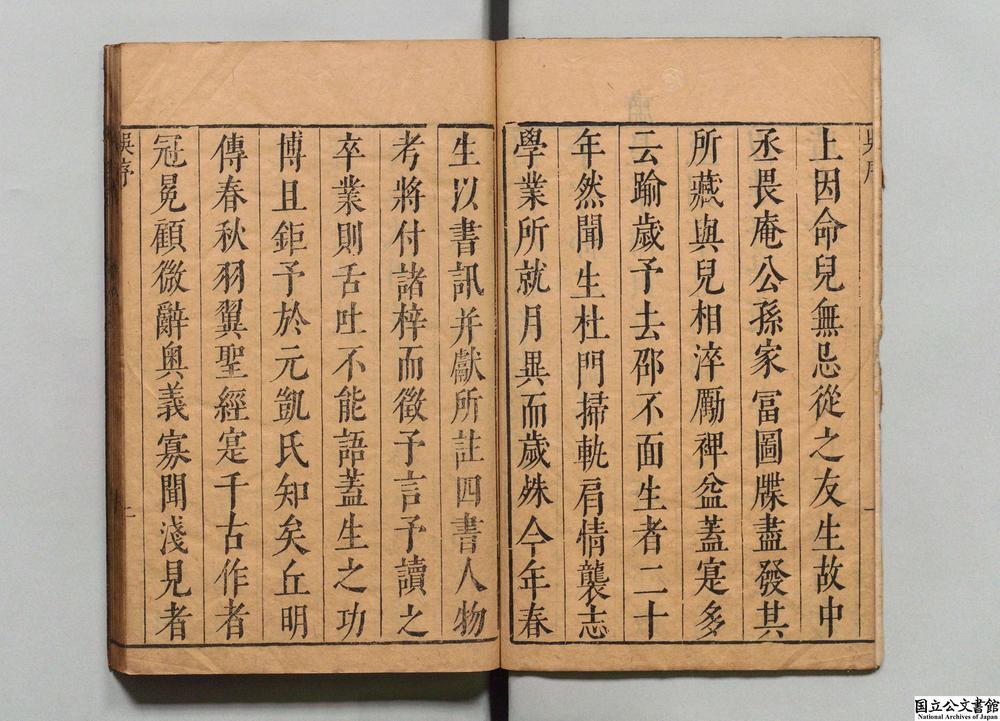 上因命兒無忌從之友生故中
丞畏庵公孫家冨圖牒盡發其
所藏與兒相淬勵禆益蓋寔多
云踰歲予去邵不面生者二十
年然聞生杜門掃軌肩情襲志
學業所就月異而歲殊今年春
生以書訊并獻所註四書人物
考將付諸梓而徵予言予讀之
卒業則舌吐不能語蓋生之功
博且鉅予於元凱氏知矣丘明
傳春秋羽翼聖經寔千古作者
冠冕顧微辭奧義寡聞淺見者
吳序
一
吳序
二
国立公文書館
National Archives of Japan